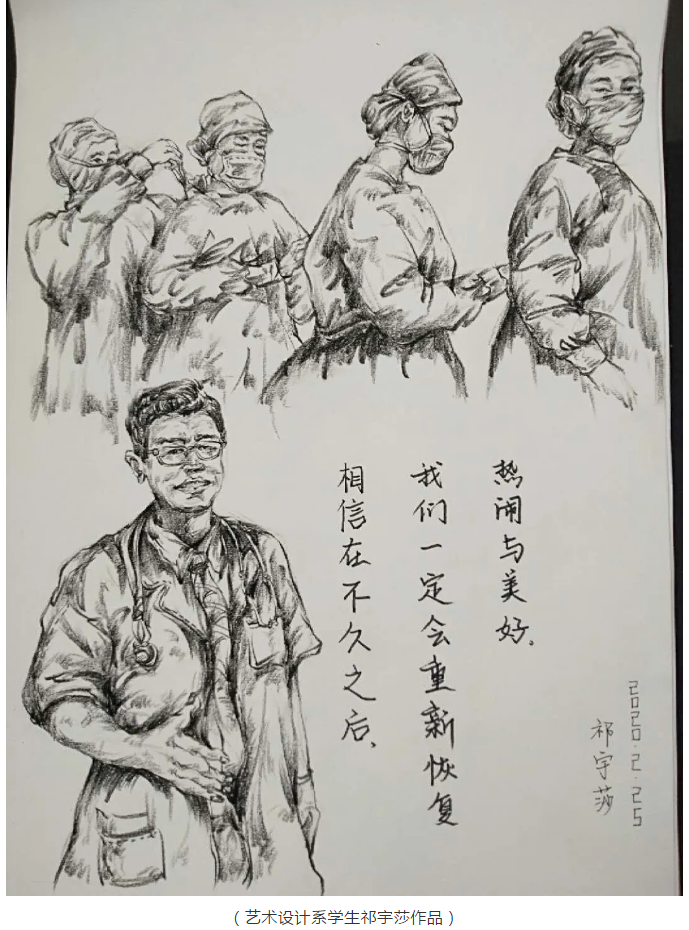 相信在不久之后、
我们一定会重新恢复
热闹与美好。
2020.2.25
祁宇莎
（艺术设计系学生祁宇莎作品）